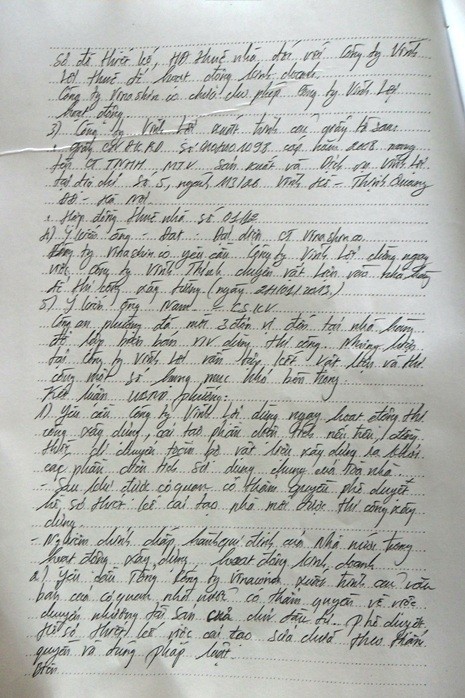 sơ đồ thiết kế, HĐ thuê nhà, đối với Công ty Vĩnh
Lợi thuê để hoạt động kinh doanh.
Công ty Vinashin cs chưa cho phép Công ty Vĩnh Lợi
hoạt động.
3) Công ty Vĩnh Lợi xuất trình các giấy tờ sau
cấp năm 2008 mang
tên CT TNHH MTV Sản xuất và Dịch vụ Vĩnh Lợi
tại địa chỉ Số 5, ngách Vĩnh Hồ - Thịnh Quang
ĐĐ - Hà Nội
Hợp đồng thuê nhà số
4) Ý kiến ông - Đạt - Đại diện CT Vinashin co
Công ty Vinashin co yêu cầu Công ty Vĩnh Lợi dừng ngay
việc công ty Vĩnh Thịnh chuyển vật liệu vào nhà hàng
để thi công xây tường (ngày 24/01/2013.)
5) Ý kiến ông Nam - CSKV
Công an phường đã mời 3 đơn vị đến tại nhà hàng
để lập biên bản v/v dừng thi công. Nhưng hiện
tại Công ty Vĩnh Lợi vẫn tập kết vật liệu và thi
công một số hạng mục nhỏ bên trong.
Kết luận UBND phường:
1) Yêu cầu Công ty Vĩnh Lợi dừng ngay hoạt động thi
công xây dựng, cải tạo phần diện tích nêu trên,
di chuyển toàn bộ vật liệu xây dựng ra khỏi
các phần diện tích sử dụng chung của tòa nhà
- Sau khi được cơ quan có thẩm quyền phê duyệt
hồ sơ thiết kế cải tạo nhà mới được thi công xây
dựng
- Nghiêm chỉnh chấp hành qui định của nhà nước trong
hoạt động xây dựng, hoạt động kinh doanh
2) Yêu cầu Tổng Công ty Vinacond xuất trình các văn
bản của cơ quan nhà nước có thẩm quyền về việc
chuyển nhượng tài sản của chủ đầu tư. Phê duyệt
hồ sơ thiết kế việc cải tạo sửa chữa theo thẩm
quyền và đúng pháp luật.